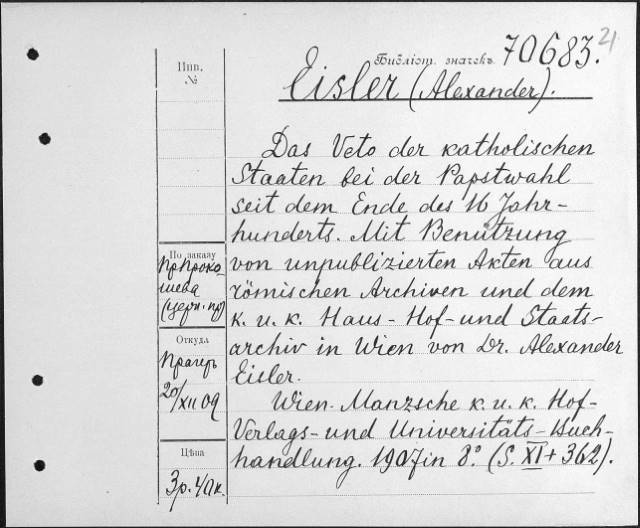 Библіот. значекъ 70683. 21
Инв.
№
Eisler (Alexander).
Das Veto der katholischen
Staaten bei der Papstwahl
seit dem Ende des 16 Jahr-
hunderts. Mit Benützung
von unpublizierten Akten aus
römischen Archiven und dem
k. u. k. Haus- Hof- und Staats-
archiv in Wien von Dr. Alexander
Eisler.
Wien. Manzsche k. u. k. Hof-
Verlags- und Universitäts-Buch-
handlung. 1907 in 8º. (S. XI + 362).
По заказу
Пр Проко-
шева
(церк. пр)
Откуда
Прагеръ
20/XII 09
Цѣна
3 р. 41 к.